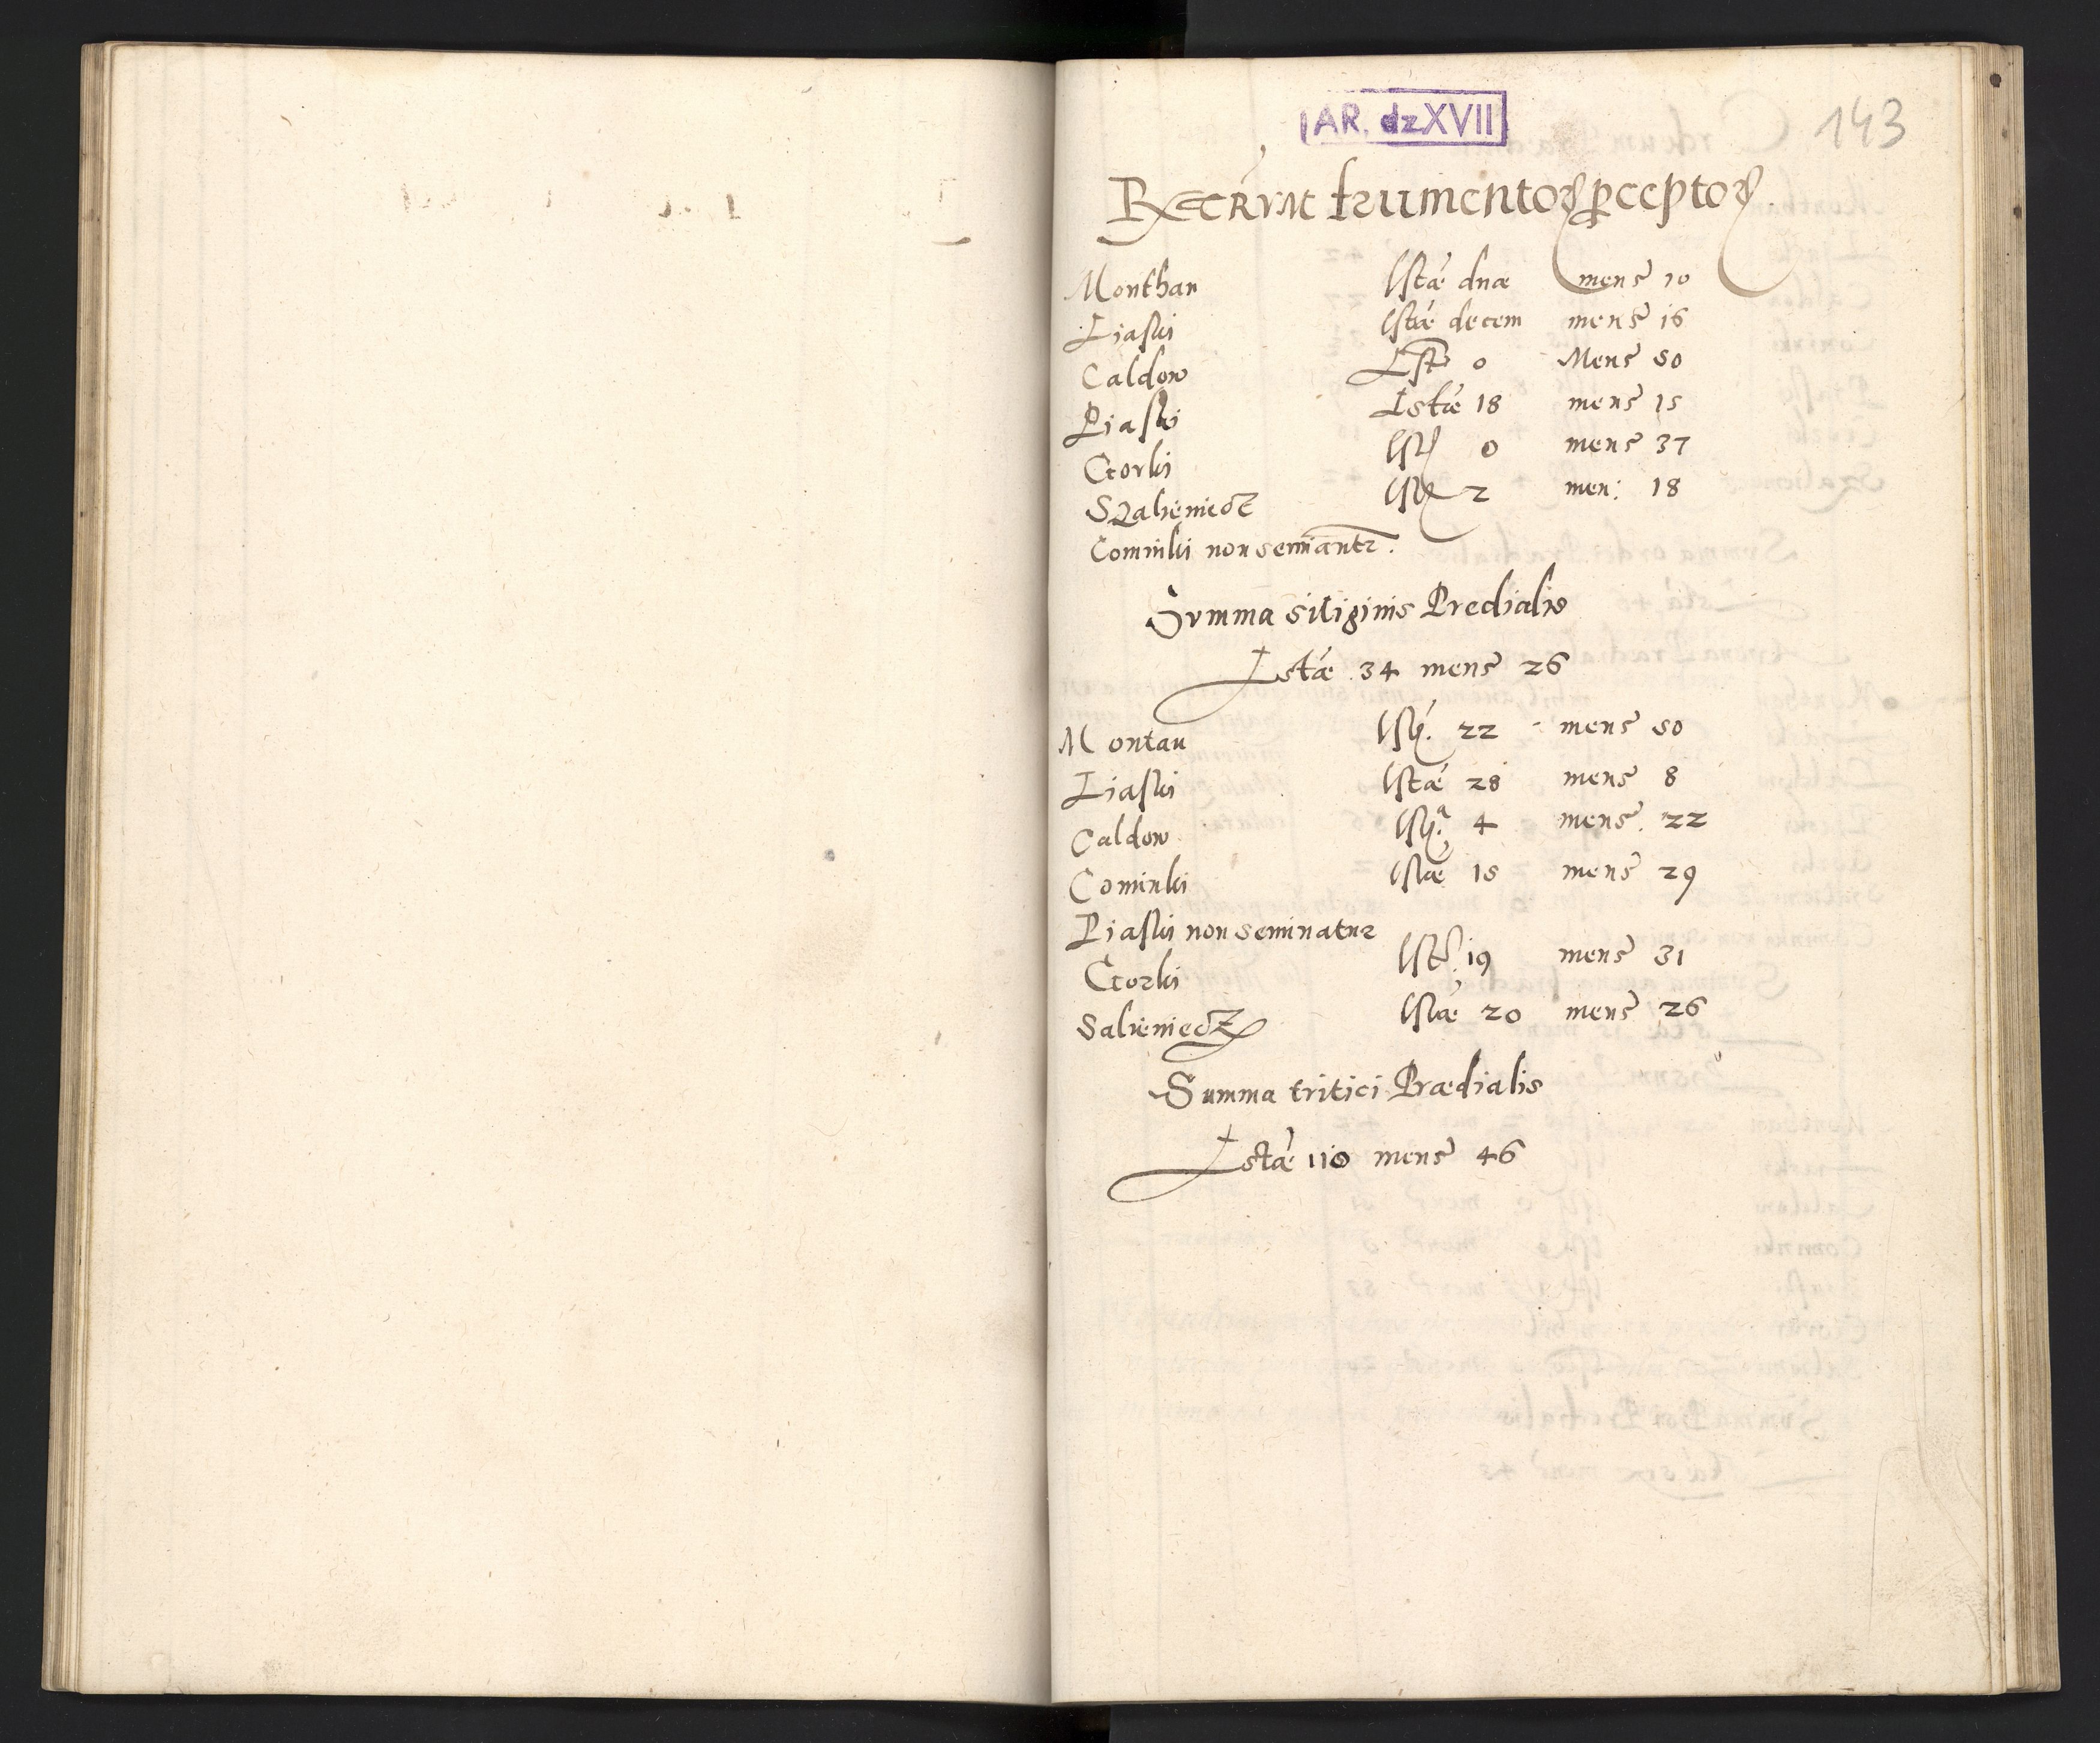 AR. dzXVII
143
Rectrum frumentoꝝ ꝑceptoꝝ.
Monthan lstæ duæ mens 10
Liaski lstæ decem mens 16
Caldow Lst 0 Mens 50
Piaski Lstæ 18 mens 15
Czorki lst 0 mens 37
Szalieniecz lst 2 men: 18
Cominki non seminantr.
Summa siliginis Predialis
Lstæ 34 mens 26
Montau lst. 22 mens 50
Liaski lstæ 28 mens 8
Caldow lst. 4 mens. 22
Cominki lstæ 15 mens 29
Piaski non seminatur
Czorki lst. 19 mens 31
Salieniecz lstæ 20 mens 26
Summa tritici Prædialis
Lstæ 110 mens 46